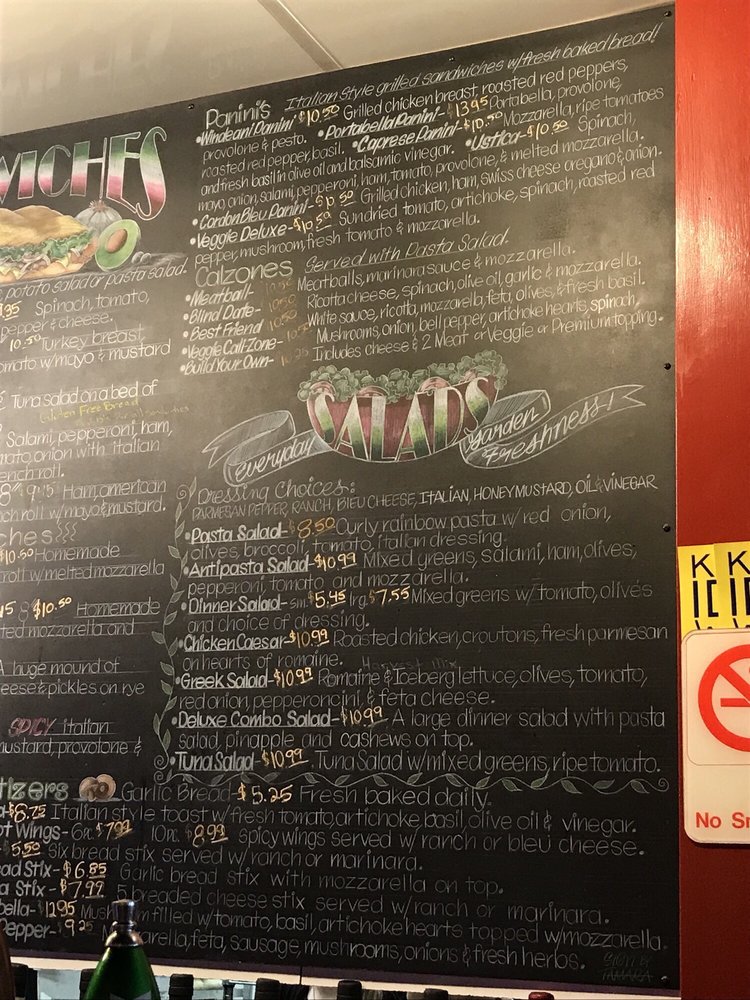 WICHES
potato salad or pasta salad.
Spinach, tomato,
pepper & cheese.
10.50 Turkey breast,
tomato w/mayo & mustard
Tuna salad on a bed of
Gluten Free Bread
Salami, pepperoni, ham,
onion with italian
roll.
8" 9.45 Ham, american
roll w/mayo & mustard.
ches
$10.50 Homemade
roll w/melted mozzarella
8 $10.50 Homemade
mozzarella and
A huge mound of
cheese & pickles on rye
SPICY italian
mustard, provolone &
Panini's Italian Style grilled sandwiches w/fresh baked bread!
•Windeanl Panini $10.50 Grilled chicken breast, roasted red peppers,
provolone & pesto. •Portabella Panini-$13.95 Portabella, provolone,
roasted red pepper, basil. •Caprese Panini-$10.50 Mozzarella, ripe tomatoes
and fresh basil in olive oil and balsamic vinegar. •Ustica-$10.50 Spinach,
mayo, onion, salami, pepperoni, ham, tomato, provolone, & melted mozzarella.
•Cordon Bleu Panini- Grilled chicken, ham, swiss cheese oregano & onion.
•Veggie Deluxe-$10.50 Sundried tomato, artichoke, spinach, roasted red
pepper, mushroom, fresh tomato & mozzarella.
Calzones Served with Pasta Salad.
•Meatball- 10.50 Meatballs, marinara sauce & mozzarella.
•Blind Date- 10.50 Ricotta cheese, spinach, olive oil, garlic & mozzarella.
•Best Friend 10.50 White sauce, ricotta, mozzarella, feta, olives, & fresh basil.
•Veggie Call-Zone- 10.50 Mushrooms, onion, bell pepper, artichoke hearts, spinach,
•Build Your Own- 10.25 Includes cheese & 2 Meat or Veggie or Premium topping.
everyday SALADS garden
freshness!
Dressing Choices:
PARMESAN PEPPER, RANCH, BLEU CHEESE, ITALIAN, HONEY MUSTARD, OIL & VINEGAR
•Pasta Salad-$8.50 Curly rainbow pasta w/red onion,
olives, broccoli, tomato, italian dressing.
•Antipasta Salad-$10.99 Mixed greens, salami, ham, olives,
pepperoni, tomato and mozzarella.
•Dinner Salad- sm. 5.45 lrg. $7.55 Mixed greens w/tomato, olives
and choice of dressing.
•Chicken Caesar-$10.99 Roasted chicken, croutons, fresh parmesan
on hearts of romaine.
•Greek Salad-$10.99 Romaine & Iceberg lettuce, olives, tomato,
red onion, pepperoncini, & feta cheese.
•Deluxe Combo Salad-$10.99 A large dinner salad with pasta
salad, pinapple and cashews on top.
•Tuna Salad-$10.99 Tuna Salad w/mixed greens, ripe tomato.
tizers Garlic Bread-$5.25 Fresh baked daily.
a-$8.75 Italian style toast w/fresh tomato, artichoke, basil, olive oil & vinegar.
ot Wings- 6pc. $7.99 10pc. $8.99 spicy wings served w/ranch or bleu cheese.
$5.50 Six bread stix served w/ranch or marinara.
ead Stix-$6.85 Garlic bread stix with mozzarella on top.
a Stix-$7.99 5 breaded cheese stix served w/ranch or marinara.
bella-$12.95 filled w/tomato, basil, artichoke hearts topped w/mozzarella.
Pepper-$9.25 feta, sausage, mushrooms, onions & fresh herbs.
SIGN BY
TAMARA
K K
No Sm